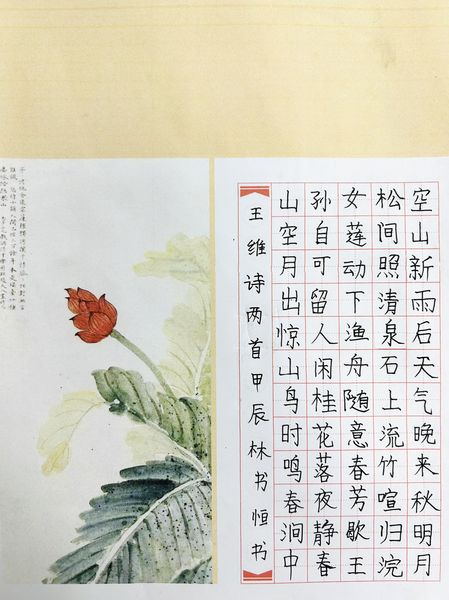 空山新雨后天气晚来秋明月
松间照清泉石上流竹喧归浣
女莲动下渔舟随意春芳歇王
孙自可留人闲桂花落夜静春
山空月出惊山鸟时鸣春涧中
王维诗两首甲辰林书恒书